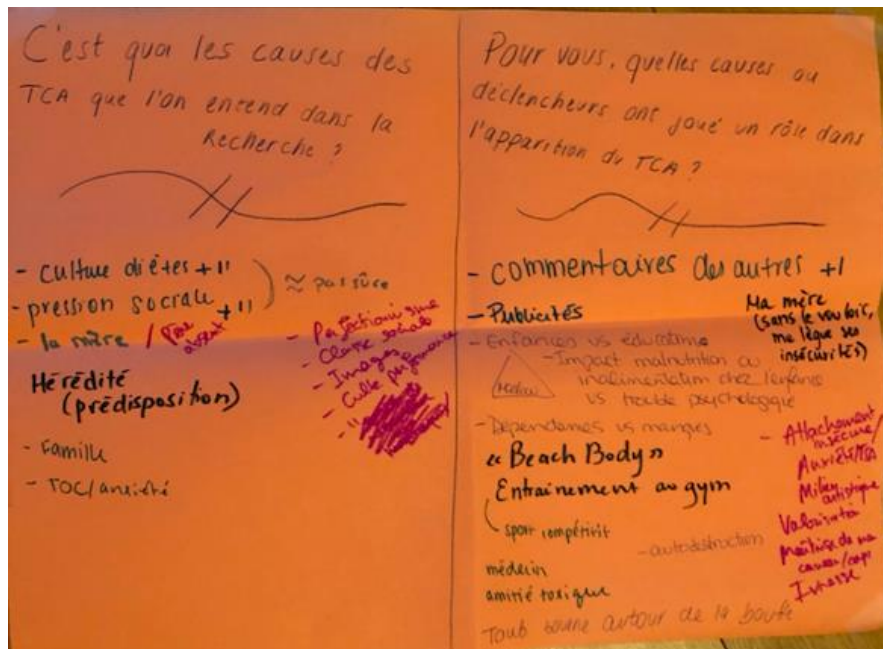 C'est quoi les causes des
TCA que l'on entend dans la
Recherche ?
- culture diètes +11
- pression sociale +11
≈ pas sûre
- la mère / Père
absent
- Perfectionnisme
- Classe sociale
- Images
- Culte performance
Hérédité
(prédisposition)
- Famille
- TOC/anxiété
Pour vous, quelles causes ou
déclencheurs ont joué un rôle dans
l'apparition du TCA ?
- commentaires des autres +1
- Publicités
Ma mère
(sans le vouloir,
me lègue ses
insécurités)
- Enfances vs éducation
- Impact malnutrition ou
inalimentation chez l'enfance
vs trouble psychologique
- Dépendances vs manques
« Beach Body »
Entraînement au gym
sport compétitif
- autodestruction
médecin
amitié toxique
- Attachement
insécure/
Anxiété/
Milieu
artistique
Valorisation
Maîtrise de
corps
Tout tourne autour de la bouffe